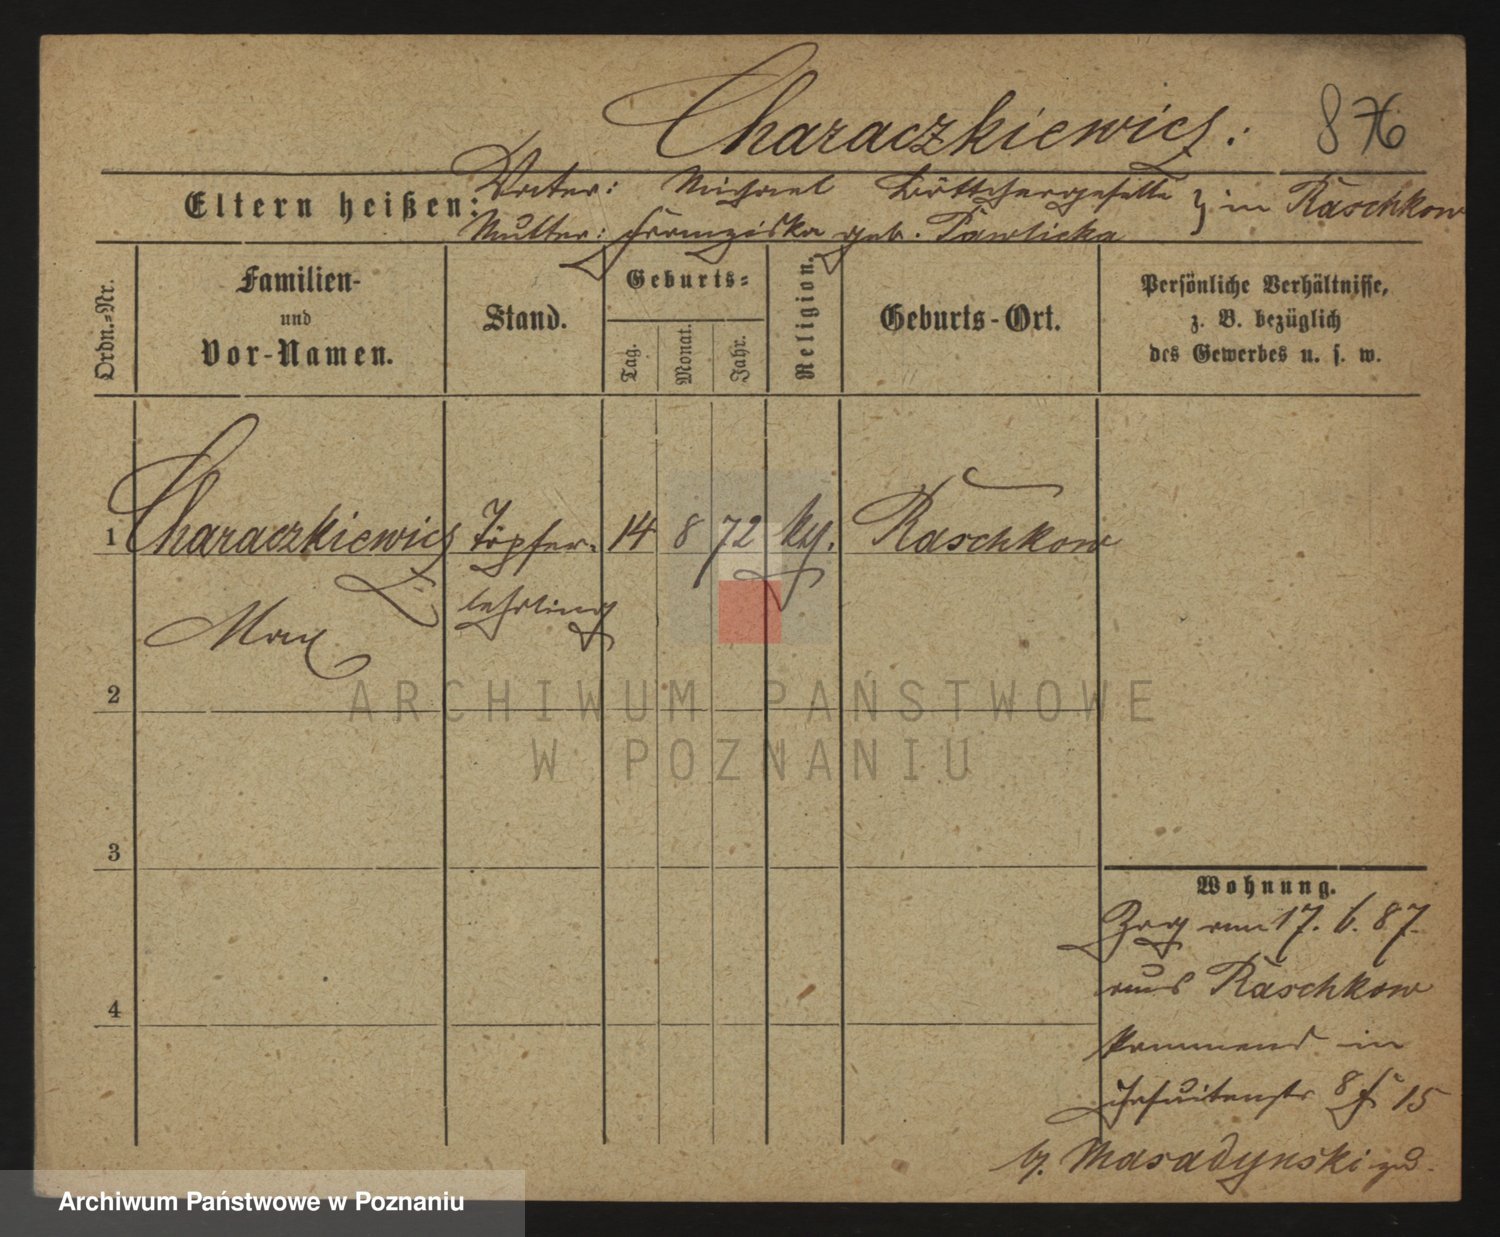 Characzkiewicz. 876
Eltern heißen: Vater: Michael Böttchergeselle } in Raschkow
Mutter: Franziska geb. Pawlicka
Ordn.-Nr.
Familien-
und
Vor-Namen.
Stand.
Geburts-
Tag.
Monat.
Jahr.
Religion.
Geburts-Ort.
Persönliche Verhältnisse,
z. B. bezüglich
des Gewerbes u. s. w.
1 Characzkiewicz Töpfer- 14 8 72 kg. Raschkow
lehrling
Max
2
3
4
Wohnung.
Zog am 17. 6. 87.
aus Raschkow
kommend in
Jesuitenstr 8 15
b. Masadynski zu.
ARCHIWUM PAŃSTWOWE
W POZNANIU
Archiwum Państwowe w Poznaniu